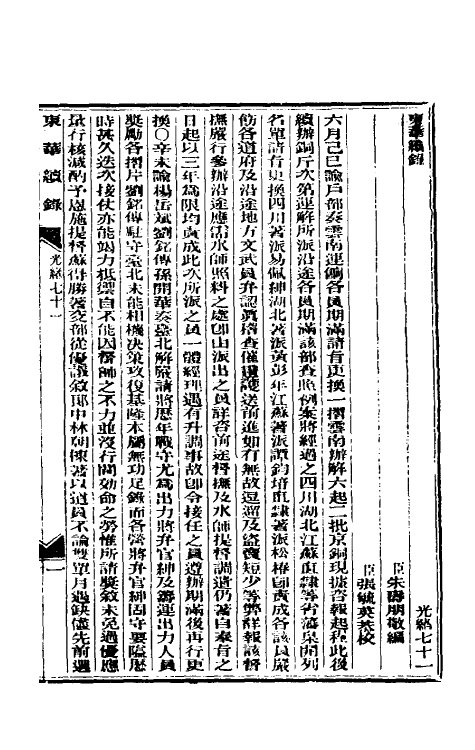 東華續錄
光緒七十一
臣朱壽朋敬編
臣張毓英恭校
六月己巳諭戶部奏雲南運銅各員期滿請旨更換一摺雲南辦解六起二批京銅現據咨報起程此後
續辦銅斤次第運解所派沿途各員期滿該部查照例案將經過之四川湖北江蘇直隸等省藩臬開列
名單請旨更換四川著派易佩紳湖北著派黃彭年江蘇著派譚鈞培直隸著派松椿卽責成各該員嚴
飭各道府及沿途地方文武員弁認眞稽查催趲護送前進如有無故逗遛及盜賣短少等弊詳報該督
撫嚴行參辦沿途應需水師照料之處卽由派出之員詳咨前途督撫及水師提督調遣仍著自奉旨之
日起以三年爲限均責成此次所派之員一體經理遇有升調事故卽令接任之員遵辦期滿後再行更
換〇辛未諭楊岳斌劉銘傳孫開華奏臺北解嚴請將歷年戰守尤爲出力將弁官紳及籌運出力人員
獎勵各摺片劉銘傳駐守臺北未能相機決策攻復基隆本屬無功足錄而各營將弁官紳固守要隘歷
時甚久迭次接仗亦能竭力抵禦自不能因督帥之不力並沒行間効命之勞惟所請獎敘未免過優應
量行核減酌予恩施提督蘇得勝著交部從優議敘郎中林朝棟著以道員不論雙單月遇缺儘先前選
東華續錄
光緒七十一
一